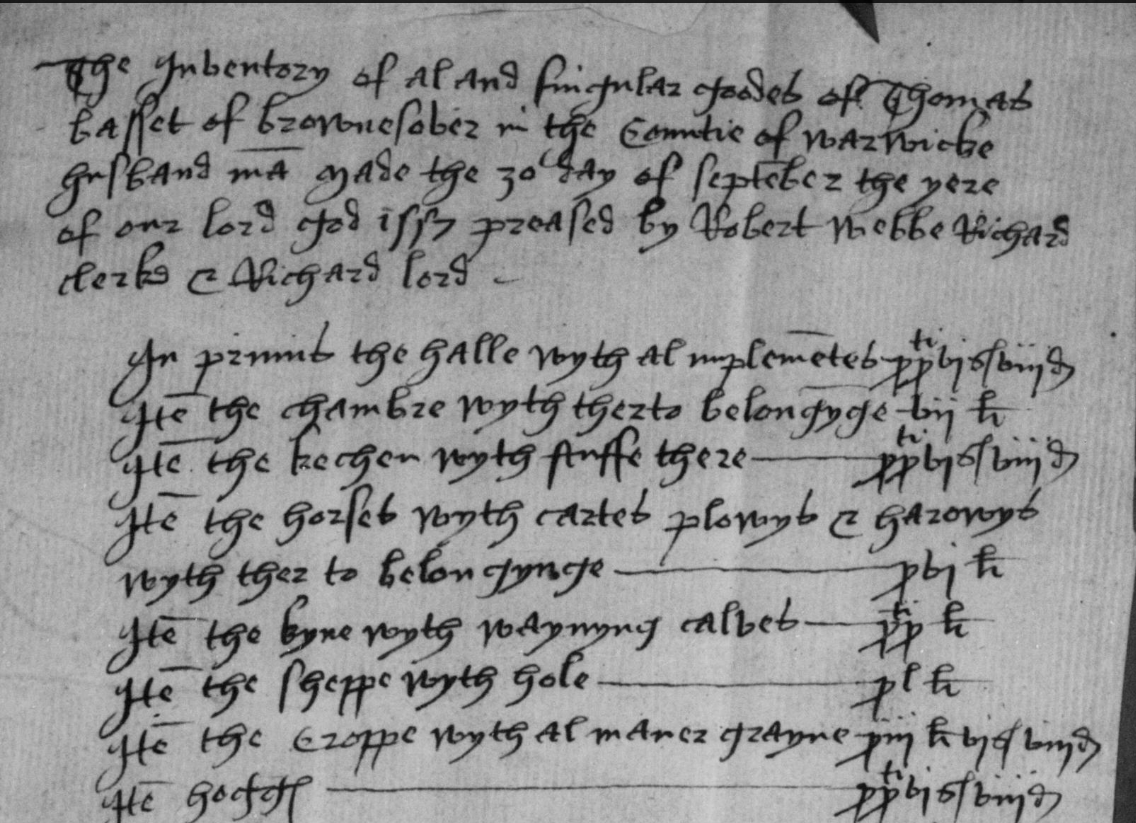 The Inventory of al and singular goodes of Thomas
basset of brownesover in the Countie of warwicke
husband mā made the 30 day of septēber the yere
of our lord god 155 preased by Robert Webbe Richard
clerke & Richard lord
In primis the halle wyth al implemētes xxti vjs viijd
Itē the chambre wyth therto belongyge vij li
Itē the kechen wyth stuffe there xxti vjs viijd
Itē the horses wyth cartes plowys & harowys
wyth ther to belongynge xvj li
Itē the kyne wyth waynyng calves xxti li
Itē the sheppe wyth hole xl li
Itē the croppe wyth al maner grayne xiij li vjs viijd
Itē hogges xxti vjs viijd